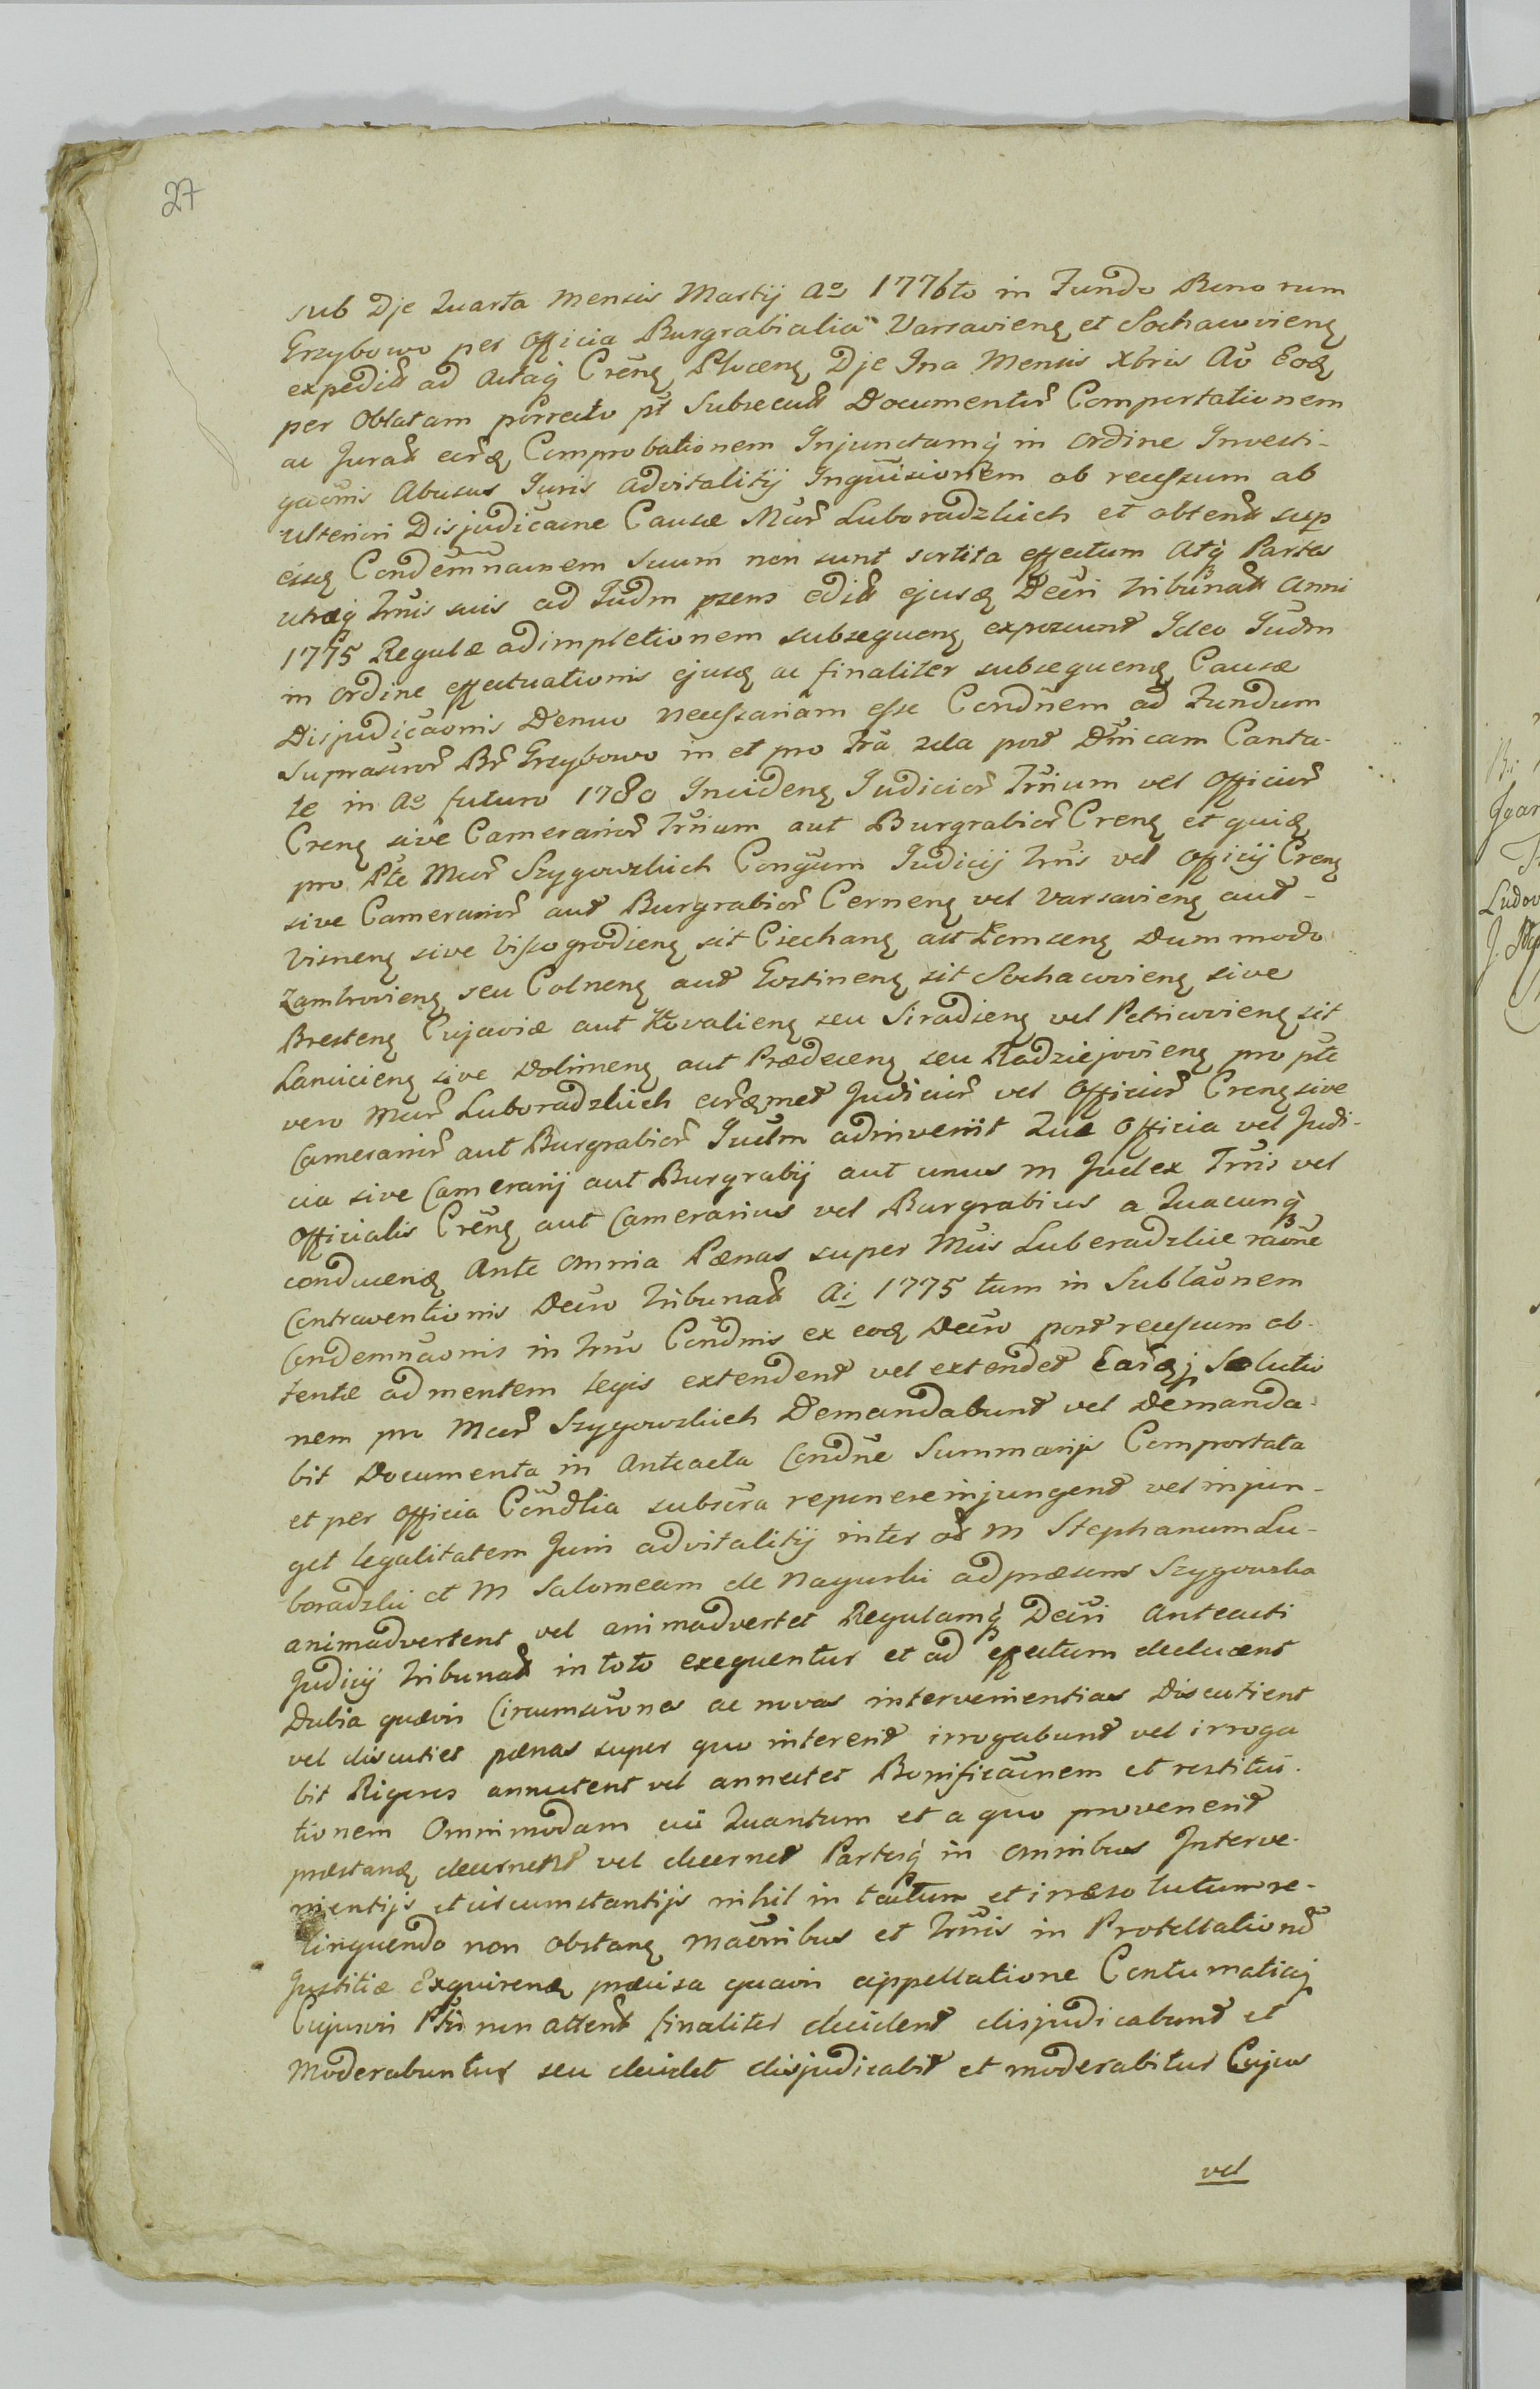 27
sub Dje Quarta Mensis Martij Ao 1776to in Fundo Bono rum
Grzybowo per Officia Burgrabialia Varsavieng et Sochacovieng
expedit ad Actaq Creng Ploceng Dje Ina Mensis Xbris Ao Eod
per Oblatam porrecto pt Subsecut Documentor Comportationem
ac Jurat eorq Comprobationem Injunctamq in Ordine Investi-
gaonis Abusus Juris advitalitij Inquisionem ob recessum ab
ulteriori Disjudicaone Causæ Mcor Luboradzkich et obtent sup
eisq Condemnaonem Suum non sunt sortita effectum Atq Partes
utræq Trnis suis ad Judm præns edit ejusq Decri Tribunat Anni
1775 Regulæ adimpletionem subsequeng exposcunt Ideo Judm
in Ordine effectuationis ejusq ac finaliter subsequenq Causæ
Disjudicaonis Denuo necessariam esse Condnem ad Fundum
Suprascror Br Grzybowo in et pro Fra 2da post Dnicam Canta-
te in Ao futuro 1780 Incideng Judicior Trrium vel Officior
Creng sive Camerarior Trrium aut Burgrabior Creng et quidq
pro Pte Mcor Szygowskich Congum Judicij Trris vel Officij Creng
sive Camerarior aut Burgrabior Cerneng vel Varsavieng aut
Visneng sive Vissogrodieng sit Ciechang aut Lomzeng Dummodo
Zambrovieng seu Colneng aut Gostineng sit Sochacovieng sive
Bresteng Cujaviæ aut Kovalieng seu Siradieng vel Petricovieng sit
Lanucieng sive Dolineng aut Prædeceng seu Radziejovieng pro pte
vero Mcor Luboradzkich eorqmet Judicior vel Officior Creng sive
Camerarior aut Burgrabior Judm adinvenit Quæ Officia vel Judi-
cia sive Camerarij aut Burgrabij aut unus M Judex Trris vel
Officialis Creng aut Camerarius vel Burgrabius a Quacunq
conducenq Ante Omnia Pænas super Mcis Luboradzkie raone
Contraventionis Decro Tribunat Ai 1775 tum in Sublaonem
Condemnaonis in Trno Condnis ex eoq Decro post recessum ob-
tentæ ad mentem Legis extendent vel extendet Earqj Solutio
nem pro Mcor Szygowskich Demandabunt vel Demanda-
bit Documenta in Anteacta Condne Summarijs Comportata
et per Officia Condlia subscra reponere injungent vel injun-
get legalitatem Juris advitalitij inter os M Stephanum Lu-
boradzki et M Salomeam de Nagurki ad præsens Szygowska
animadvertent vel animadvertet Regulamq Decri Anteacti
Judicij Tribunat in toto exequentur et ad effectum deducent
Dubia quævis Circumscronas ac novas intervenientias Discutient
vel discutiet pænas super quo intererit irrogabunt vel irroga
bit Rigores annectent vel annectet Bonificaonem et restitu-
tionem Omnimodam cui Quantum et a quo provenerit
præstanq decernent vel decernet Partesq in Omnibus Interve-
nientijs et circumstantijs nihil in tactum et irræsolutum re-
linquendo non Obstang maonibus et Trnis in Protellationem
Justitiæ Exquirenq præcisa quavis appellatione Contumatiaq
Cujusvis Ptis non attent finaliter decident disjudicabunt et
Moderabuntur seu decidet disjudicabit et moderabitur Cujus
vel
Ludov